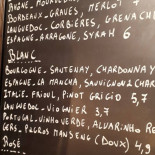 BORDEAUX-GRAVES, MERLOT 7
LANGUEDOC, CORBIÈRES, GRENACHE
ESPAGNE, ARAGONE, SYRAH 6
BLANC
BOURGOGNE-SANTENAY, CHARDONNAY
ESPAGNE, LA MANCHA, SAUVIGNON CHAR
ITALIE, FRIOUL, PINOT GRIGIO 5,7
LANGUEDOC-VIOGNIER 3,7
PORTUGAL-VINHO VERDE, ALVARINHO
GERS-PACROS MANSENG (DOUX) 4,9
ROSÉ